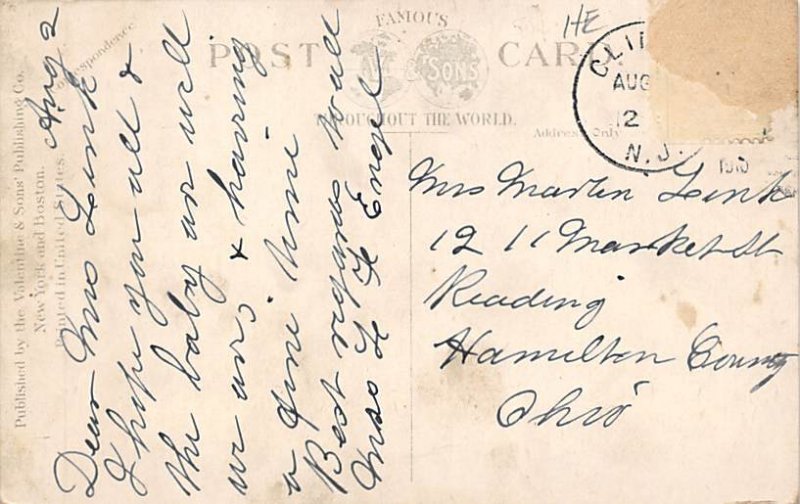 HE
FAMOUS
POST CARD.
& SONS
THROUGHOUT THE WORLD.
Correspondence
Address Only
AUG
12
N.J.
1910
Published by the Valentine & Sons' Publishing Co.
New York and Boston.
Printed in United States.
Aug 2
Dear Mrs Link
I hope you all &
the baby are well
we are, & having
a fine time
Best regards to all
Mrs Engel
Mrs Martin Link
1211 Market St
Reading
Hamilton County
Ohio